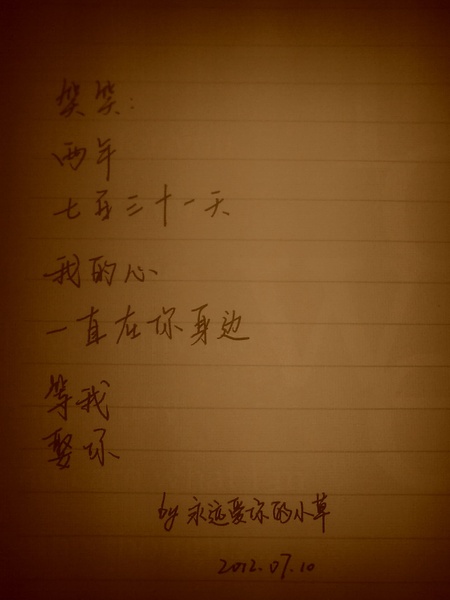 笑笑:
两年
七百三十一天
我的心
一直在你身边
等我
娶你
by 永远爱你的小草
2012.07.10